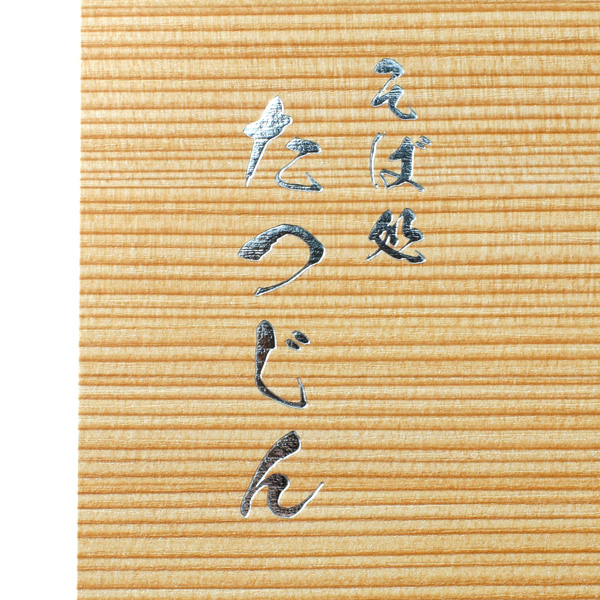 そば処
たつじん